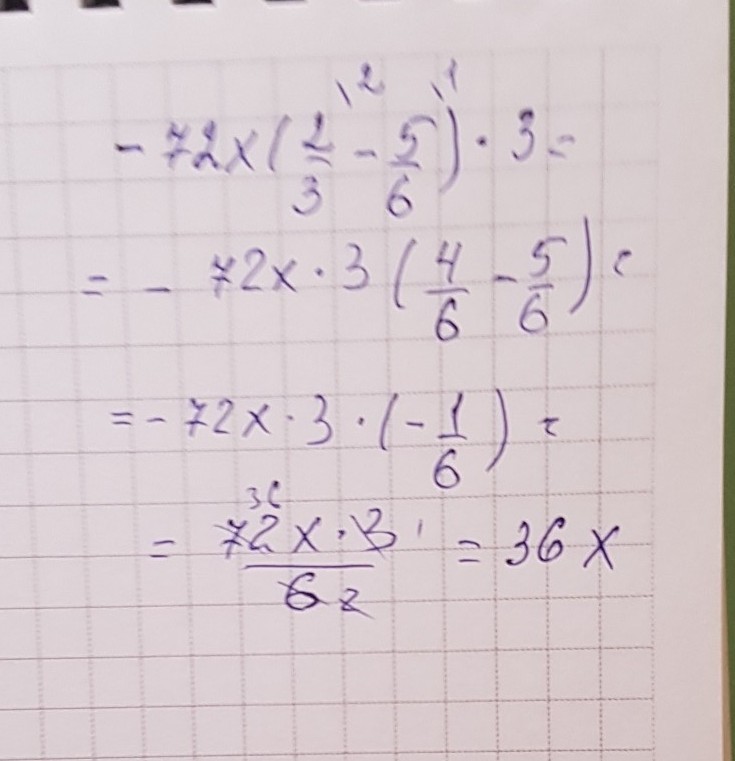 \2 \1
- 72x(2/3 - 5/6) · 3 =
= - 72x · 3 (4/6 - 5/6) =
= - 72x · 3 · (- 1/6) =
36 1
= 72x · 3/6 2 = 36x